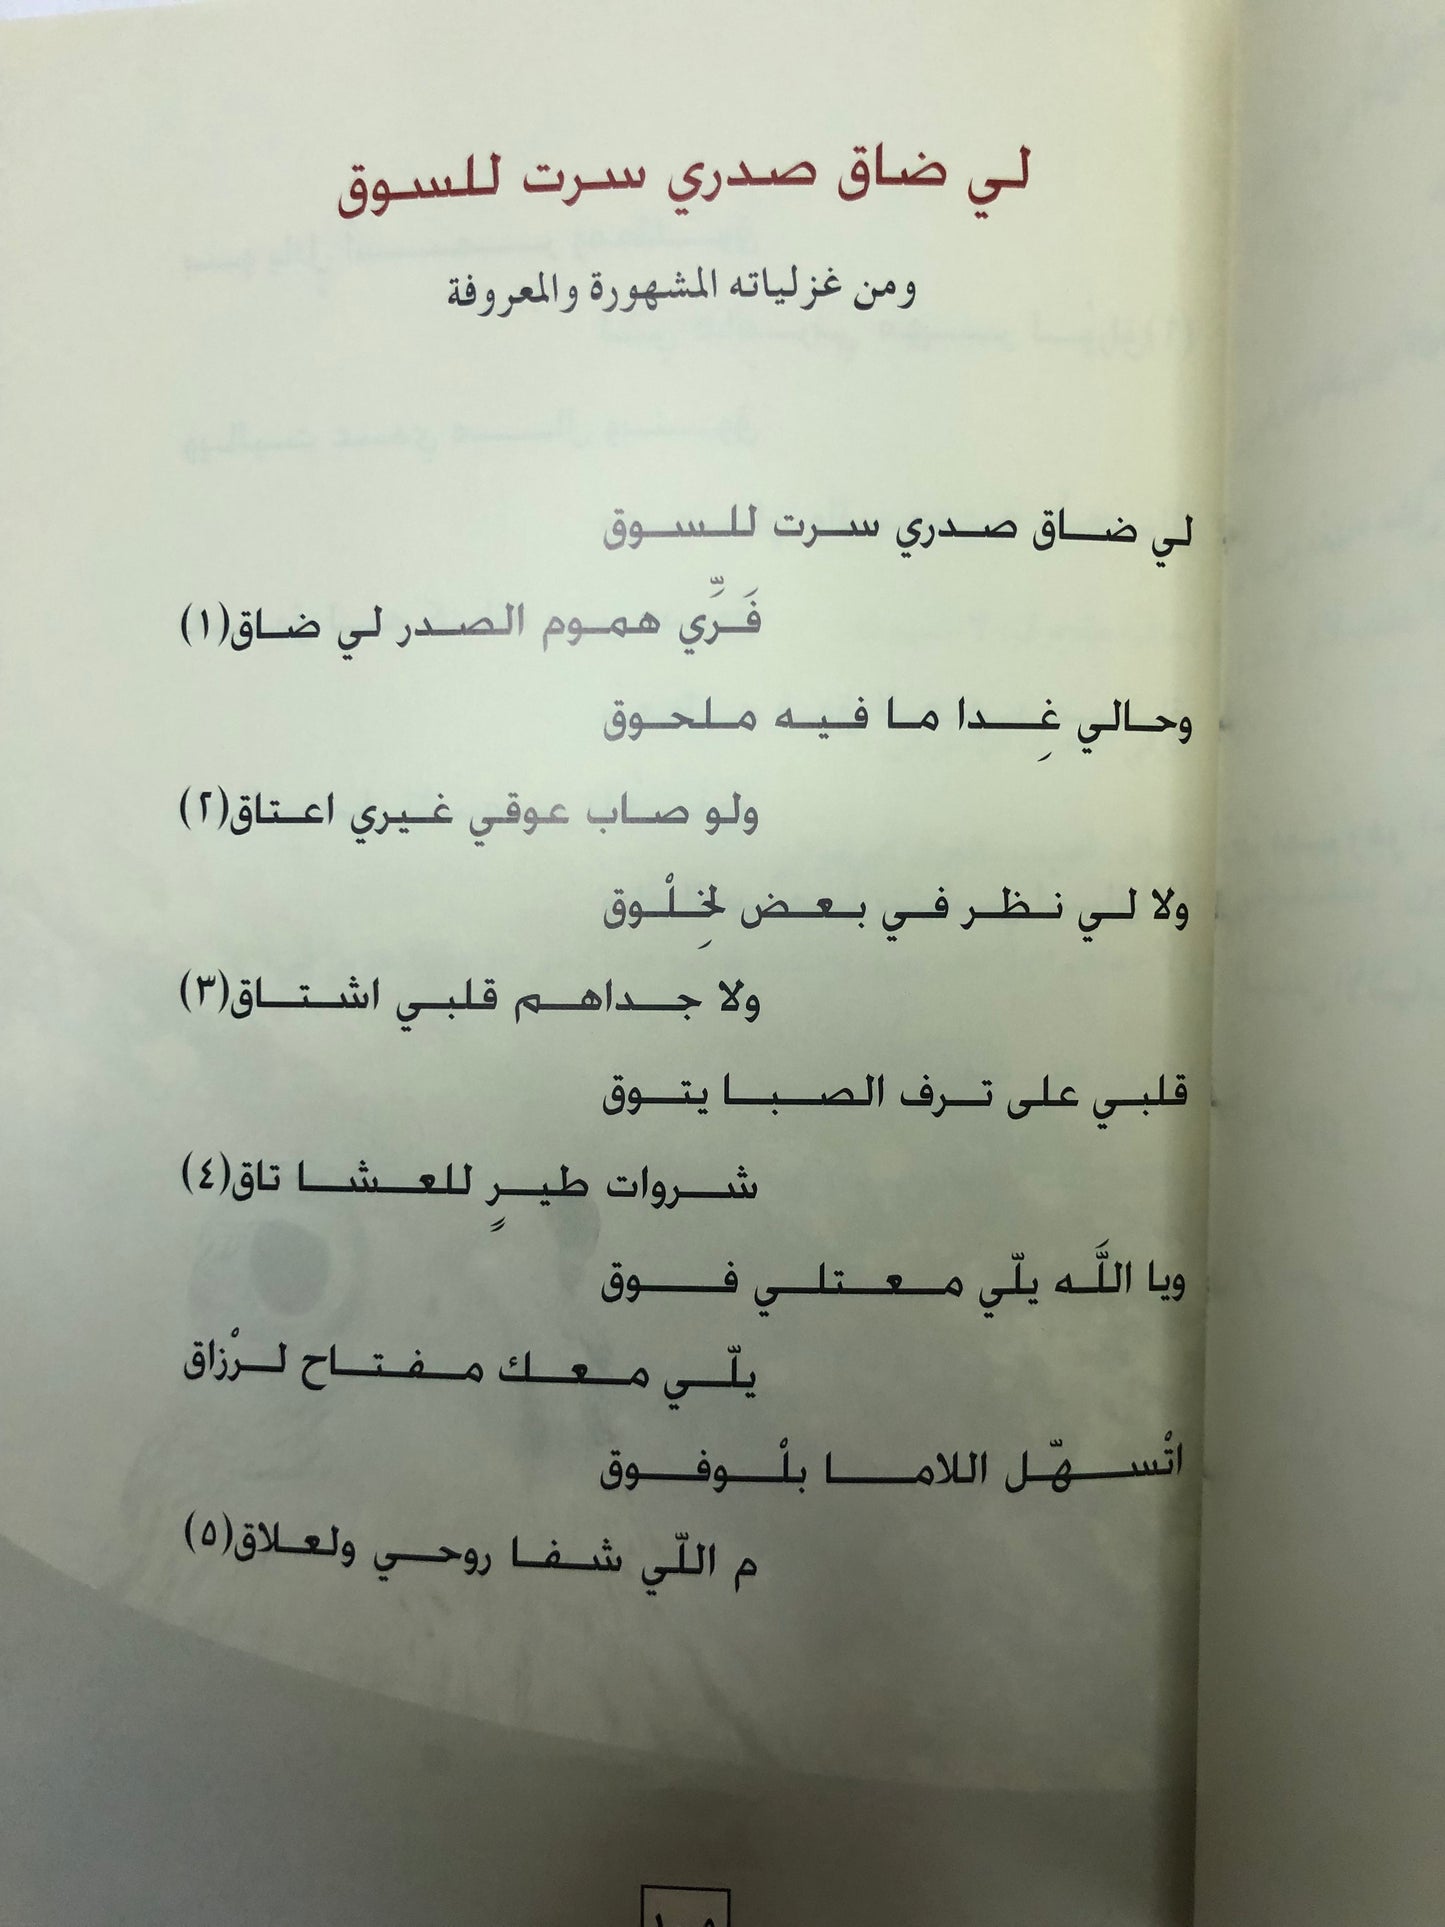 لي ضاق صدري سرت للسوق
ومن غزلياته المشهورة والمعروفة
لي ضاق صدري سرت للسوق
فَرِّي هموم الصدر لي ضاق(١)
وحالي غِدا ما فيه ملحوق
ولو صاب عوقي غيري اعتاق(٢)
ولا لي نظر في بعض لخِلْوق
ولا جداهم قلبي اشتاق(٣)
قلبي على ترف الصبا يتوق
شروات طيرٍ للعشا تاق(٤)
ويا اللَّه يلّي معتلي فوق
يلّي معك مفتاح لرْزاق
اتْسهّل اللاما بلْوفوق
م اللّي شفا روحي ولعلاق(٥)